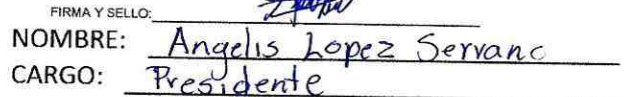 FIRMA Y SELLO:
NOMBRE: Angelis Lopez Serrano
CARGO: Presidente